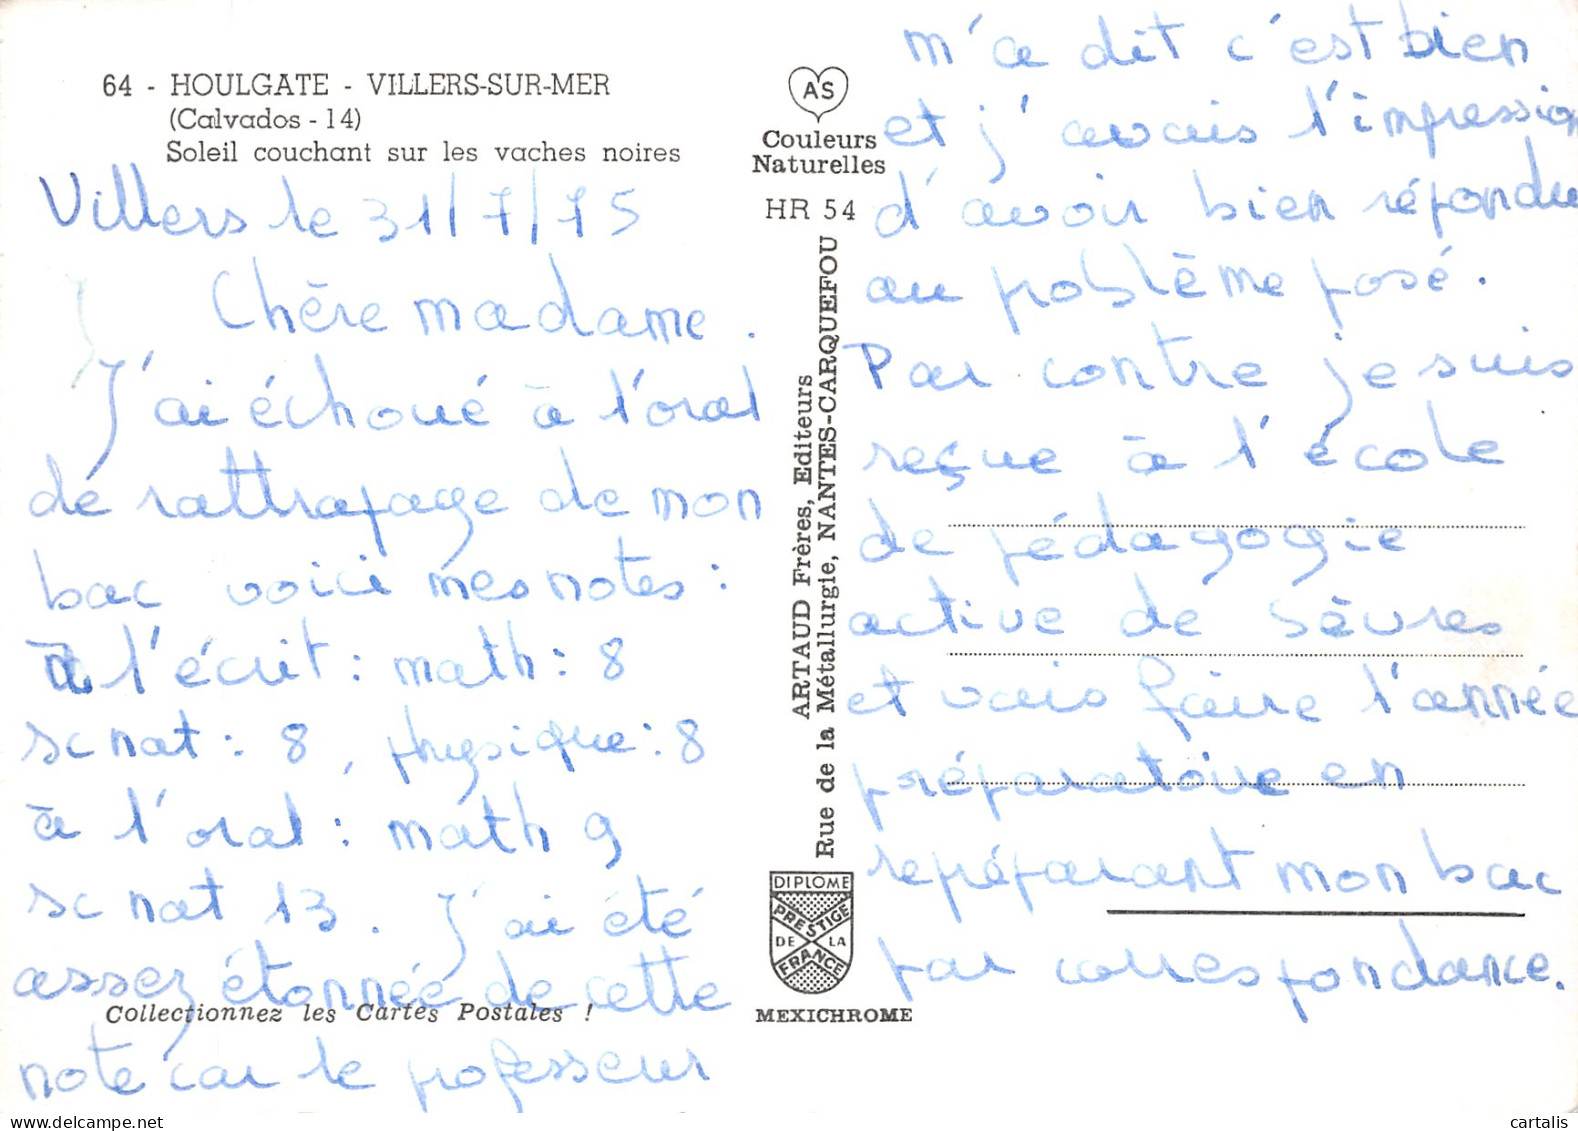 64 - HOULGATE - VILLERS-SUR-MER
(Calvados - 14)
Soleil couchant sur les vaches noires
Villers le 31/7/75
Chère madame.
J'ai échoué à l'oral
de rattrapage de mon
bac voici mes notes :
à l'écrit : math : 8
sc nat : 8, physique : 8
à l'oral : math 9
sc nat 13. J'ai été
assez étonnée de cette
Collectionnez les Cartes Postales !
note car le professeur
AS
Couleurs
Naturelles
HR 54
ARTAUD Frères, Editeurs
Rue de la Métallurgie, NANTES-CARQUEFOU
DIPLOME
PRESTIGE
DE LA
FRANCE
MEXICHROME
m'a dit c'est bien
et j'avais l'impression
d'avoir bien répondu
au problème posé.
Par contre je suis
reçue à l'école
de pédagogie
active de Sèvres
et vais faire l'année
préparatoire en
repréparant mon bac
par correspondance.
cartalis